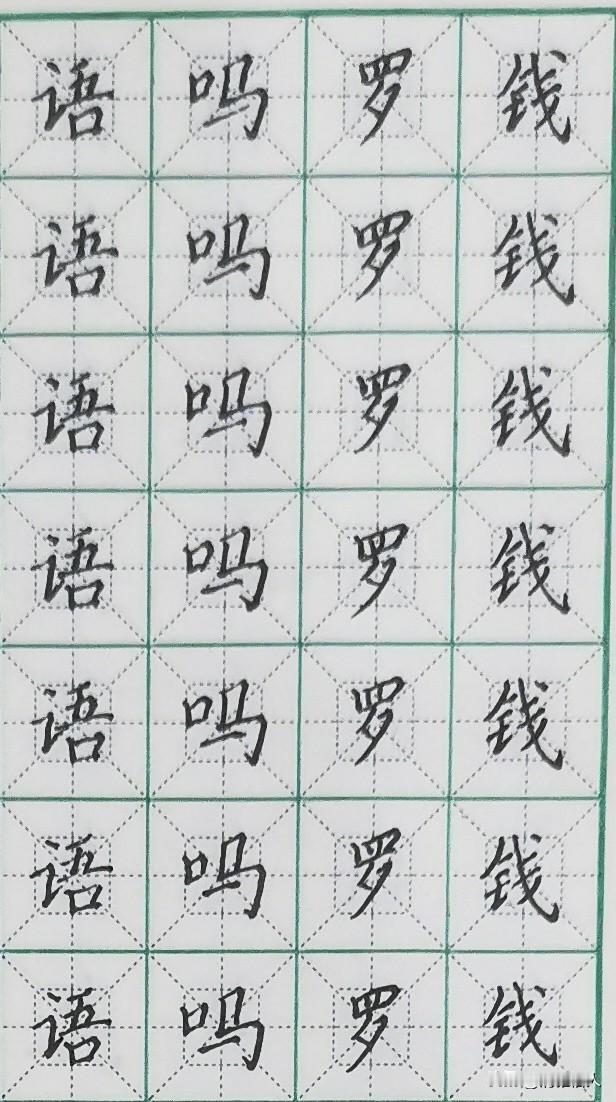 语吗罗钱
语吗罗钱
语吗罗钱
语吗罗钱
语吗罗钱
语吗罗钱
语吗罗钱